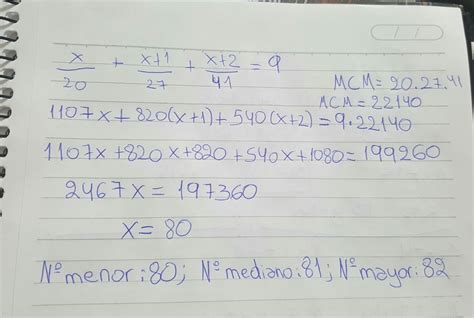 x/20 + x+1/27 + x+2/41 = 9
MCM = 20.27.41
MCM = 22140
1107x + 820(x+1) + 540(x+2) = 9.22140
1107x + 820x + 820 + 540x + 1080 = 199260
2467x = 197360
x = 80
Nº menor: 80; Nº mediano: 81; Nº mayor: 82